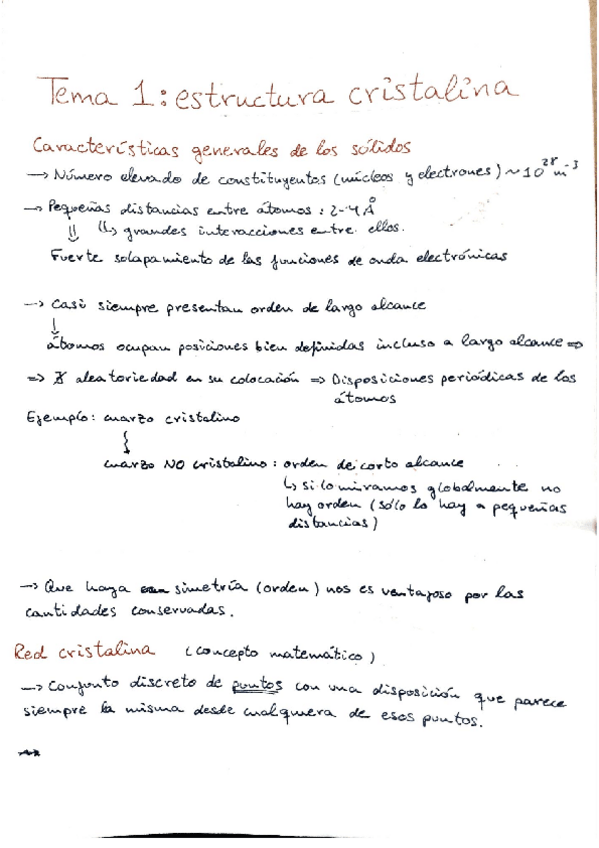 Tema 1: estructura cristalina
Características generales de los sólidos
→ Número elevado de constituyentes (núcleos y electrones) ~ 10²⁸ m⁻³
→ Pequeñas distancias entre átomos: 2-4 Å
⇓ ↳ grandes interacciones entre ellos.
Fuerte solapamiento de las funciones de onda electrónicas
→ Casi siempre presentan orden de largo alcance
↓
átomos ocupan posiciones bien definidas incluso a largo alcance ⇒
⇒ ∄ aleatoriedad en su colocación ⇒ Disposiciones periódicas de los
átomos
Ejemplo: cuarzo cristalino
cuarzo NO cristalino: orden de corto alcance
↳ si lo miramos globalmente no
hay orden (sólo lo hay a pequeñas
distancias)
→ Que haya simetría (orden) nos es ventajoso por las
cantidades conservadas.
Red cristalina (concepto matemático)
→ Conjunto discreto de puntos con una disposición que parece
siempre la misma desde cualquiera de esos puntos.